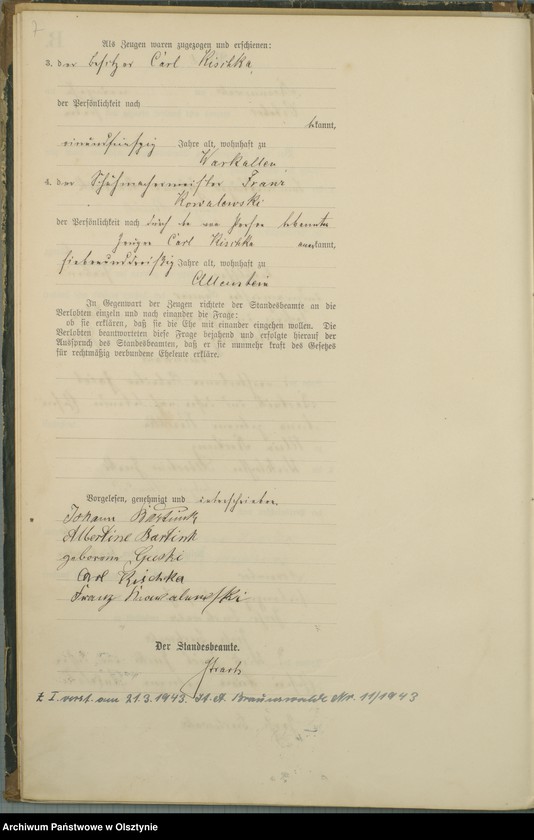 7
Als Zeugen waren zugezogen und erschienen:
3. der Besitzer Carl Kischka
der Persönlichkeit nach
bekannt,
einundfünfzig Jahre alt, wohnhaft zu
Warkallen
4. der Schuhmachermeister Franz
Kowalewski
der Persönlichkeit nach durch de von Person bekannten
Zeugen Carl Kischka anerkannt,
siebenunddreißig Jahre alt, wohnhaft zu
Allenstein
In Gegenwart der Zeugen richtete der Standesbeamte an die
Verlobten einzeln und nach einander die Frage:
ob sie erklären, daß sie die Ehe mit einander eingehen wollen. Die
Verlobten beantworteten diese Frage bejahend und erfolgte hierauf der
Ausspruch des Standesbeamten, daß er sie nunmehr kraft des Gesetzes
für rechtmäßig verbundene Eheleute erkläre.
Vorgelesen, genehmigt und unterschrieben.
Johann
Albertine Bartink
geborene
Carl Kischka
Franz Kowalewski
Der Standesbeamte.
Z I. verst. am 21.3.1943. St. A. Braunswalde Nr. 11/1943
Archiwum Państwowe w Olsztynie